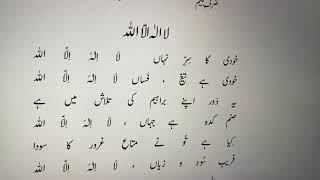 ضربِ کلیم
لا الٰہ الّا اللہ
خودی کا سِرِّ نہاں لَا اِلٰہَ اِلَّا اللہ
خودی ہے تیغ، فساں لَا اِلٰہَ اِلَّا اللہ
یہ دَور اپنے براہیم کی تلاش میں ہے
صنم کدہ ہے جہاں، لَا اِلٰہَ اِلَّا اللہ
کیا ہے تُو نے متاعِ غرور کا سودا
فریب سُود و زیاں، لَا اِلٰہَ اِلَّا اللہ